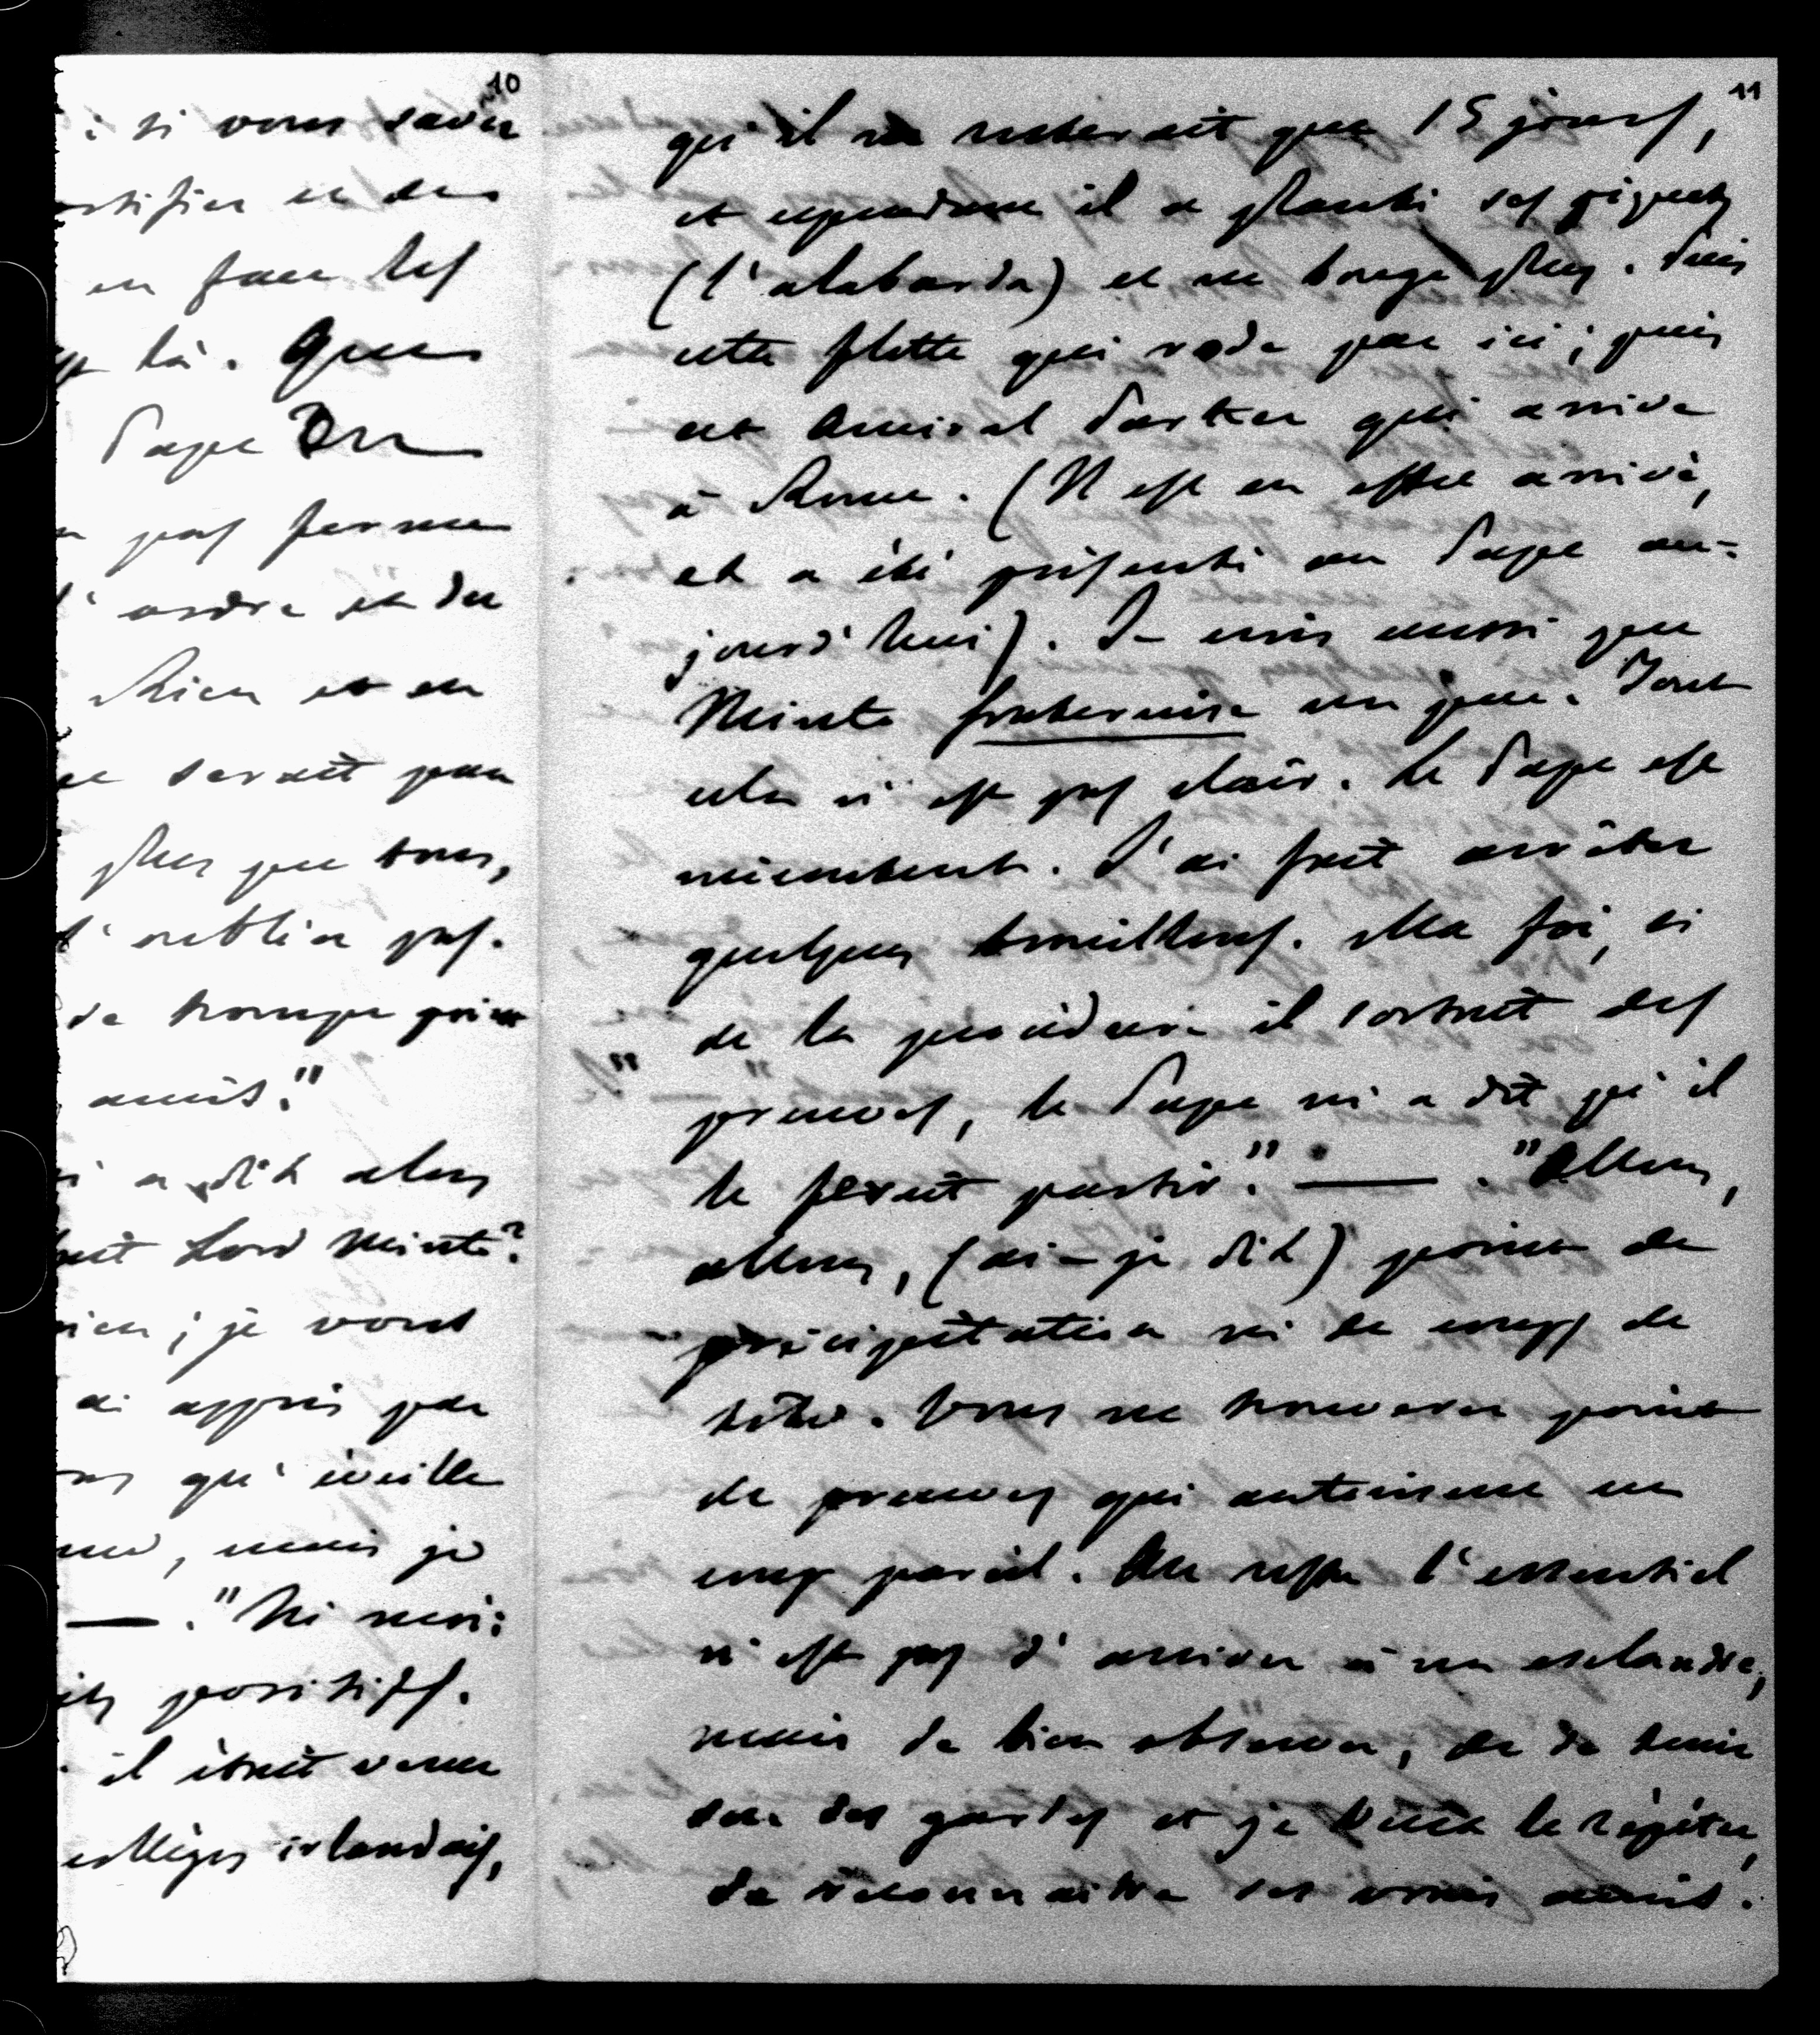 10
: si vous savez
en face les
là. Que
Pape
pas ferme
ordre et du
Rien et en
serait pas
plus que vous,
l'oublie pas.
se trompe point
amis."
a dit alors
Lord Minto?
rien; je vous
ai appris par
qu'éveille
, mais je
— . "Ni moi:
positifs.
il était venu
collèges irlandais,
11
qu'il ne resterait que 15 jours,
et cependant il a planté ses piquets
(l'alabarda) et ne bouge plus. Puis
cette flotte qui rode par ici; puis
cet Amiral Parker qui arrive
à Rome. (Il est en effet arrivé,
et a été présenté au Pape au=
jourd'hui). Je crois aussi que
Minto fraternise un peu. Tout
cela n'est pas clair. Le Pape est
mécontent. J'ai fait arrêter
quelques brouillons. Ma foi, si
de la procédure il sortait des
preuves, le Pape m'a dit qu'il
le ferait partir." — . "Allons,
allons, (ai-je dit) point de
précipitation ni de coups de
tête. Vous ne trouverez point
de preuves qui autorisent un
coup pareil. Au reste l'essentiel
n'est pas d'arriver à un esclandre,
mais de bien observer, de se tenir
sur ses gardes et je veux le répéter,
de reconnaitre ses vrais amis.